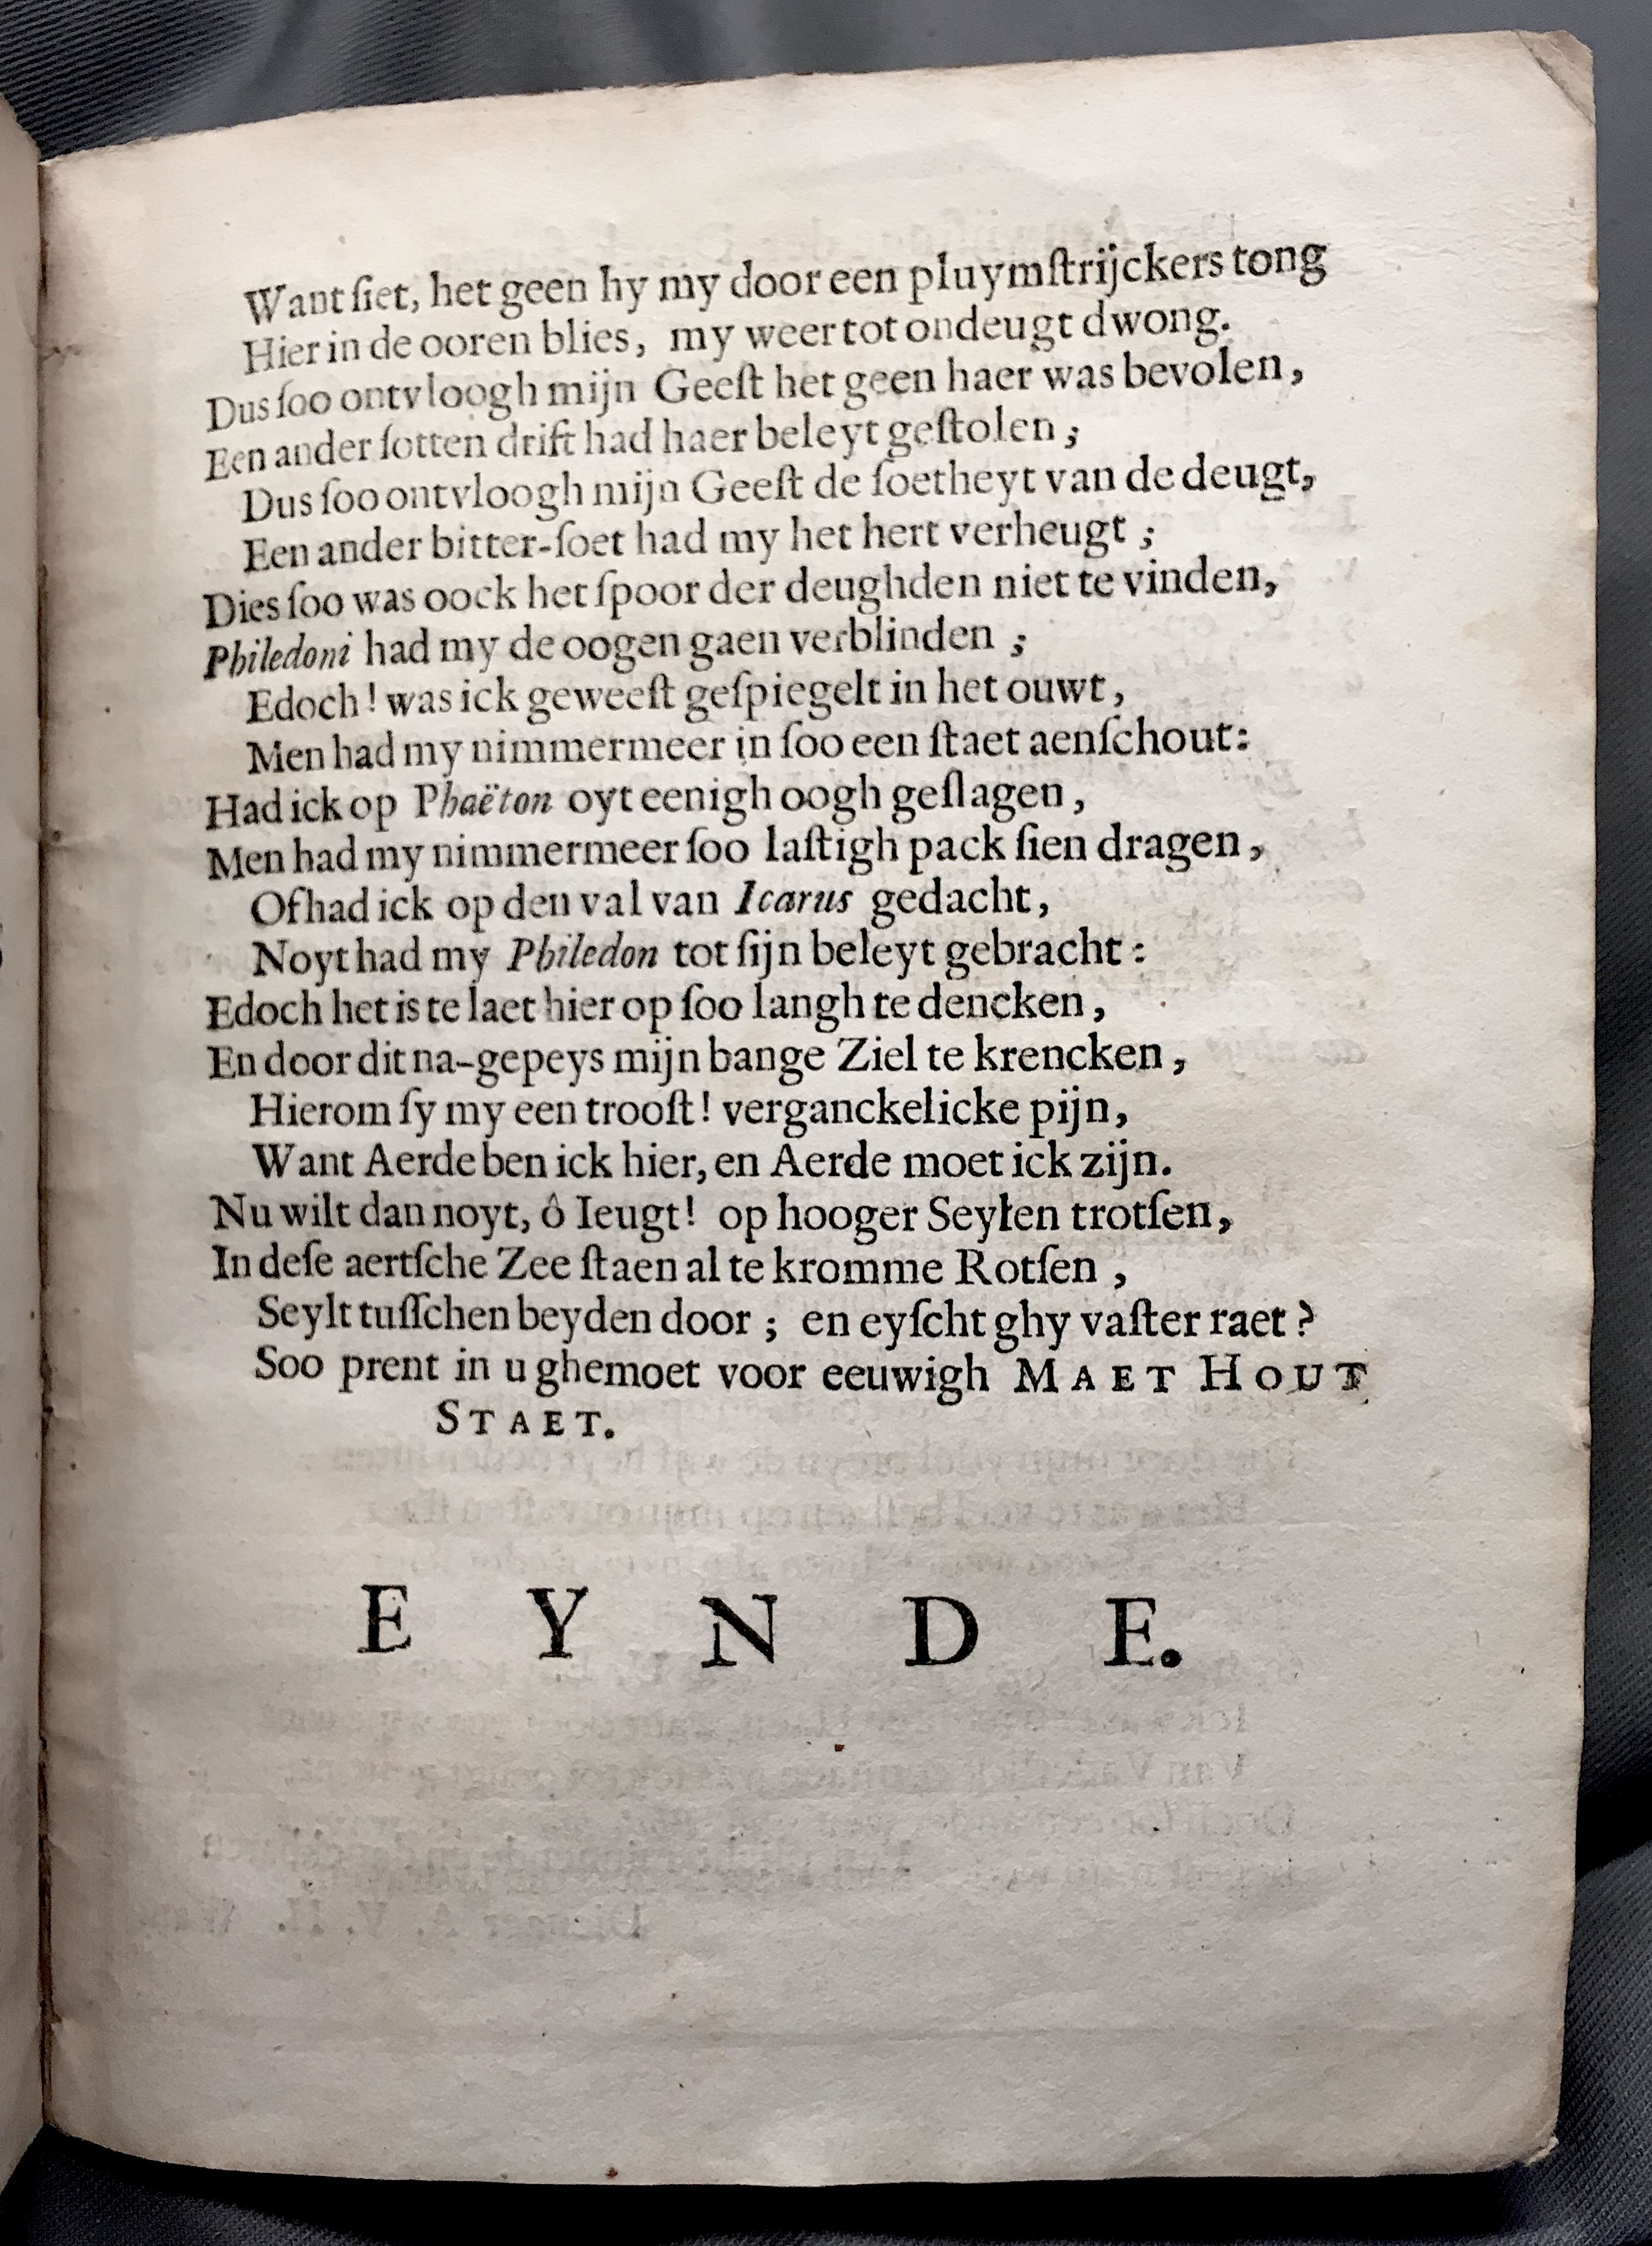 Want ſiet, het geen hy my door een pluymſtrijckers tong
Hier in de ooren blies, my weer tot ondeugt dwong.
Dus ſoo ontvloogh mijn Geeſt het geen haer was bevolen,
Een ander ſotten drift had haer beleyt geſtolen;
Dus ſoo ontvloogh mijn Geeſt de ſoetheyt van de deugt,
Een ander bitter-ſoet had my het hert verheugt;
Dies ſoo was oock het ſpoor der deughden niet te vinden,
Philedoni had my de oogen gaen verblinden;
Edoch! was ick geweeſt geſpiegelt in het ouwt,
Men had my nimmermeer in ſoo een ſtaet aenſchout:
Had ick op Phaëton oyt eenigh oogh geſlagen,
Men had my nimmermeer ſoo laſtigh pack ſien dragen,
Of had ick op den val van Icarus gedacht,
Noyt had my Philedon tot ſijn beleyt gebracht:
Edoch het is te laet hier op ſoo langh te dencken,
En door dit na-gepeys mijn bange Ziel te krencken,
Hierom ſy my een trooſt! verganckelicke pijn,
Want Aerde ben ick hier, en Aerde moet ick zijn.
Nu wilt dan noyt, ô Ieugt! op hooger Seylen trotſen,
In deſe aertſche Zee ſtaen al te kromme Rotſen,
Seylt tuſſchen beyden door; en eyſcht ghy vaſter raet?
Soo prent in u ghemoet voor eeuwigh MAET HOUT
STAET.
EYNDE.